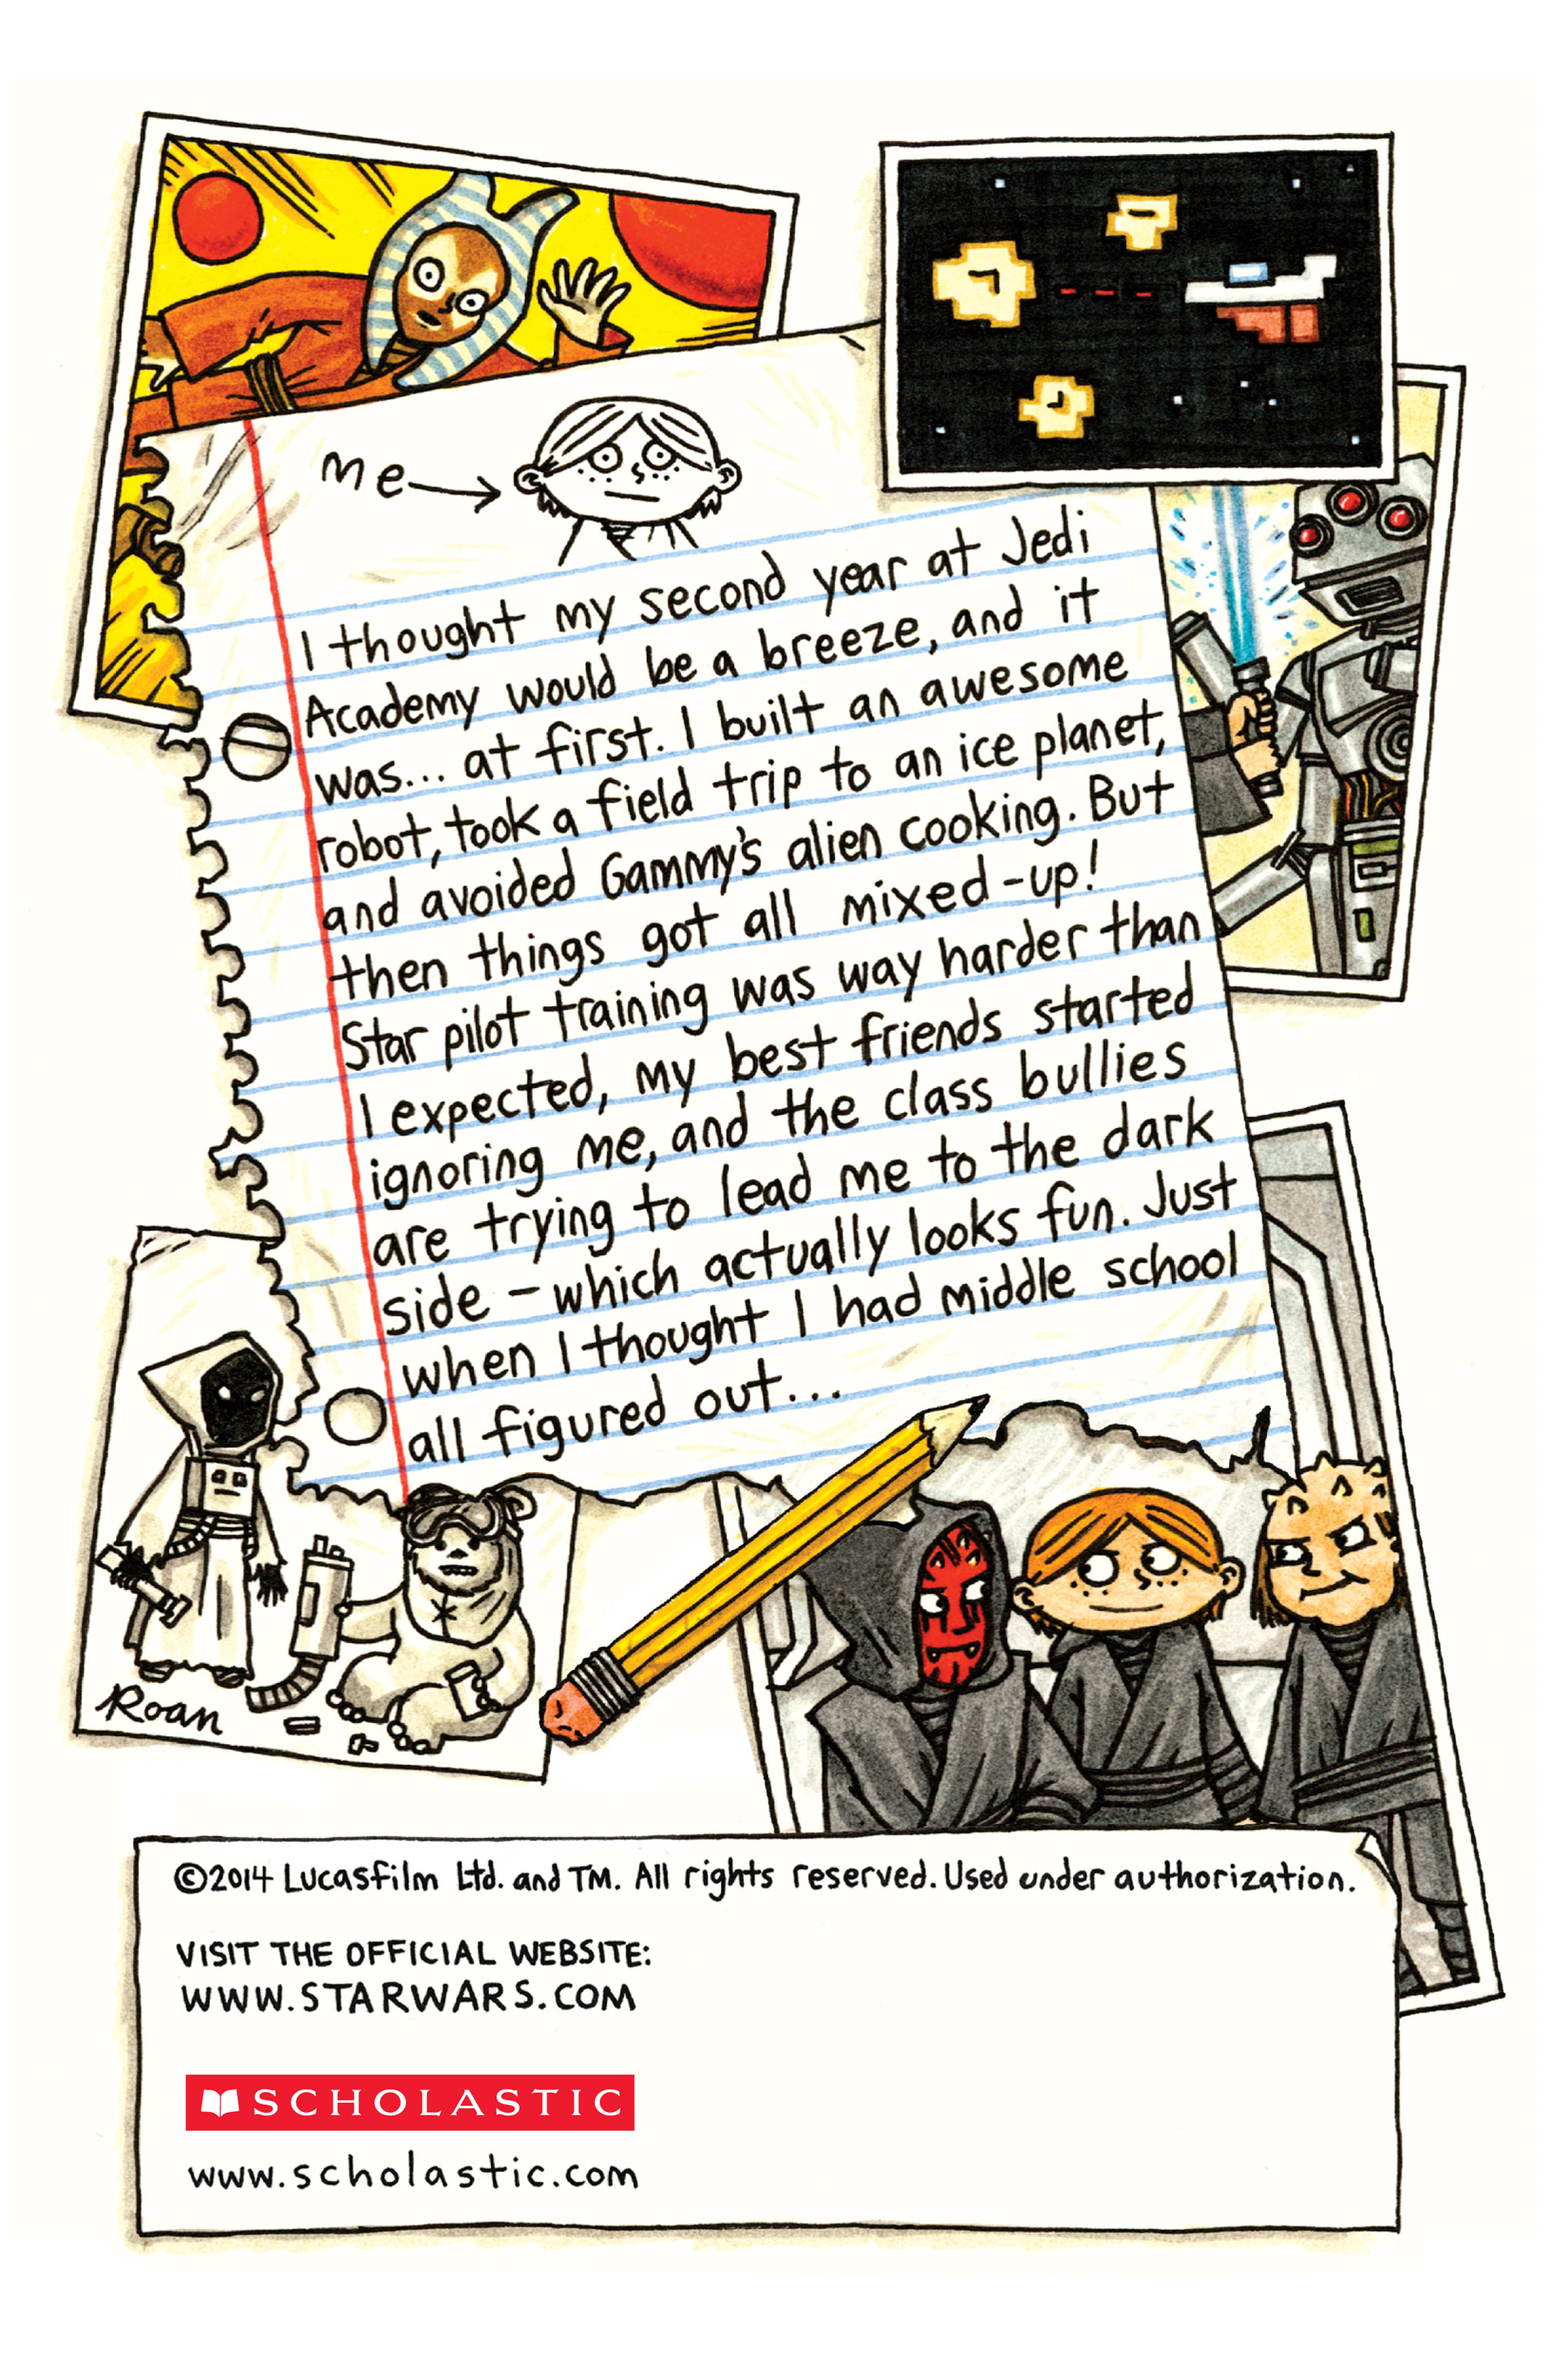 me
I thought my second year at Jedi
Academy would be a breeze, and it
was... at first. I built an awesome
robot, took a field trip to an ice planet,
and avoided Gammy's alien cooking. But
then things got all mixed-up!
Star pilot training was way harder than
I expected, my best friends started
ignoring me, and the class bullies
are trying to lead me to the dark
side - which actually looks fun. Just
when I thought I had middle school
all figured out...
Roan
©2014 Lucasfilm Ltd. and TM. All rights reserved. Used under authorization.
VISIT THE OFFICIAL WEBSITE:
WWW.STARWARS.COM
SCHOLASTIC
www.scholastic.com